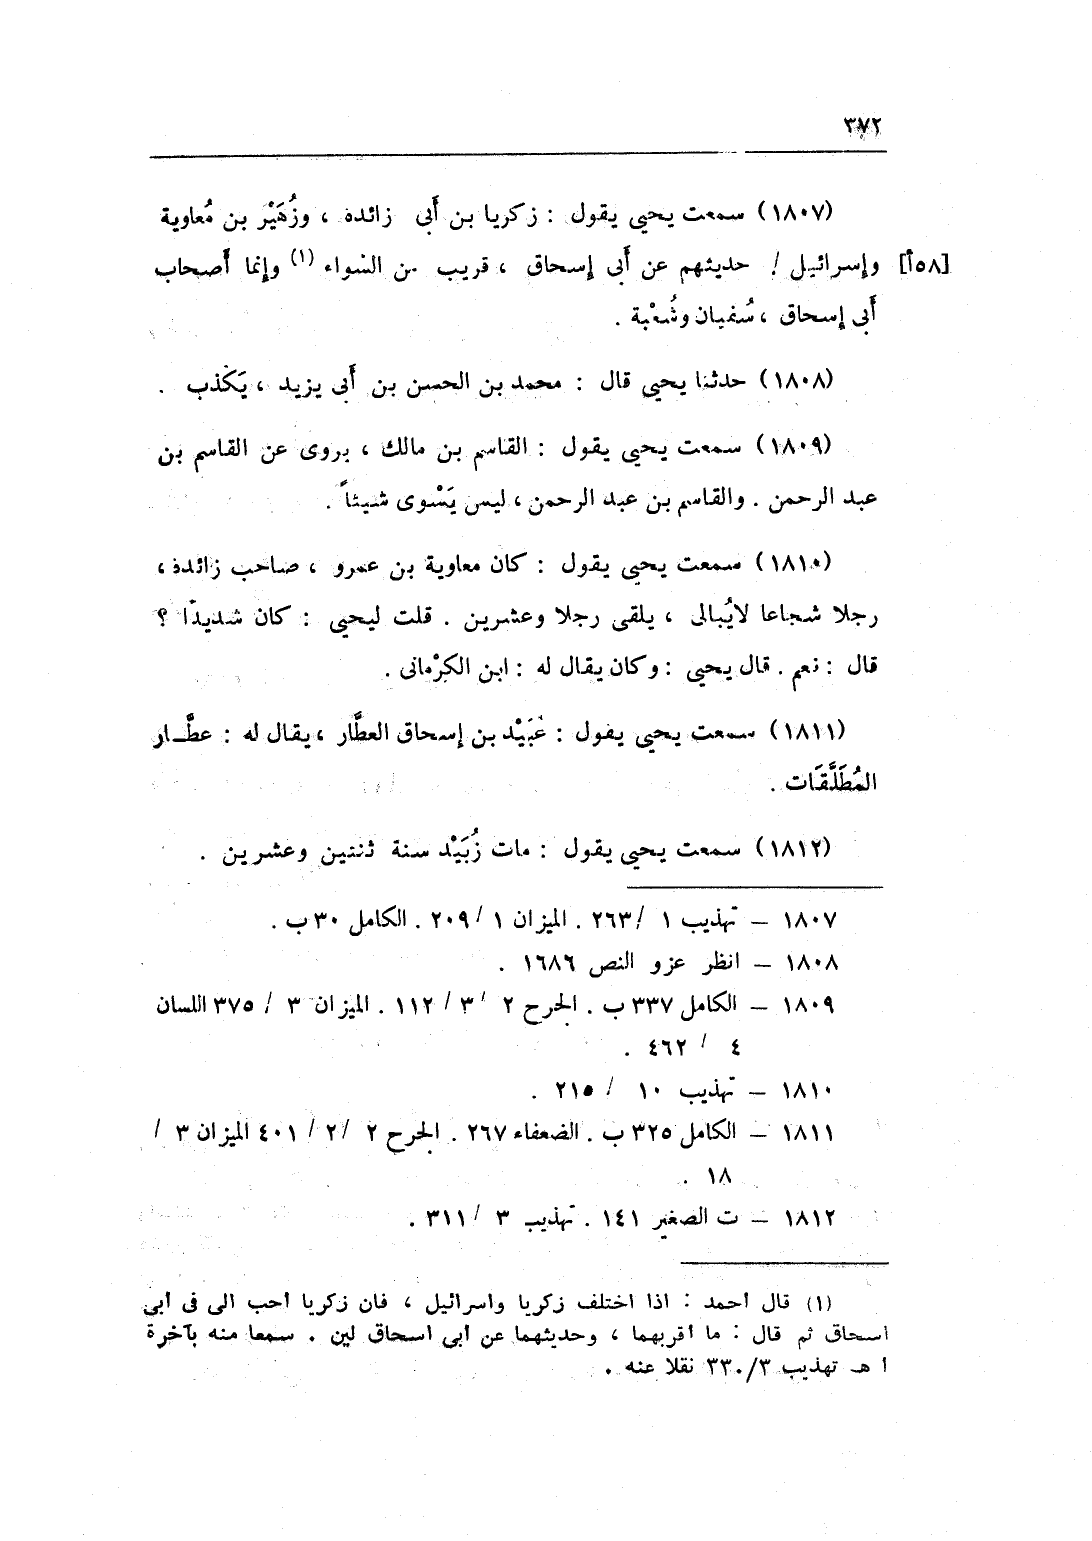 ٣٧٢
(١٨٠٧) سمعت يحيى يقول : زكريا بن أَبى زائدة ، وزُهَيْر بن مُعاوية
[٥٨أ] وإسرائيل / حديثهم عن أَبى إسحاق ، قريب من السَّواء (١) وإنما أَصحاب
أَبى إسحاق ، سُفيان وشُعْبة .
(١٨٠٨) حدثنا يحيى قال : محمد بن الحسن بن أَبى يزيد ، يَكْذب .
(١٨٠٩) سمعت يحيى يقول : القاسم بن مالك ، يروى عن القاسم بن
عبد الرحمن . والقاسم بن عبد الرحمن ، ليس يَسْوى شيئاً .
(١٨١٠) سمعت يحيى يقول : كان معاوية بن عمرو ، صاحب زائدة ،
رجلا شجاعا لايُبالى ، يلقى رجلا وعشرين . قلت ليحيى : كان شديدًا ؟
قال : نعم . قال يحيى : وكان يقال له : ابن الكِرْمانى .
(١٨١١) سمعت يحيى يقول : عُبَيْد بن إسحاق العطَّار ، يقال له : عطَّـار
المُطَلَّقَات .
(١٨١٢) سمعت يحيى يقول : مات زُبَيْد سنة ثنتين وعشرين .
١٨٠٧ – تهذيب ١ / ٢٦٣ . الميزان ١ / ٢٠٩ . الكامل ٣٠ ب .
١٨٠٨ – انظر عزو النص ١٦٨٦ .
١٨٠٩ – الكامل ٣٣٧ ب . الجرح ٢ / ٣ / ١١٢ . الميزان ٣ / ٣٧٥ اللسان
٤ / ٤٦٢ .
١٨١٠ – تهذيب ١٠ / ٢١٥ .
١٨١١ – الكامل ٣٢٥ ب . الضعفاء ٢٦٧ . الجرح ٢ / ٢ / ٤٠١ الميزان ٣ /
١٨ .
١٨١٢ – ت الصغير ١٤١ . تهذيب ٣ / ٣١١ .
(١) قال أحمد : اذا اختلف زكريا واسرائيل ، فان زكريا أحب الى فى أبى
اسحاق ثم قال : ما أقربهما ، وحديثهما عن أبى اسحاق لين . سمعا منه بآخرة
ا هـ تهذيب ٣/٣٣٠ نقلا عنه .